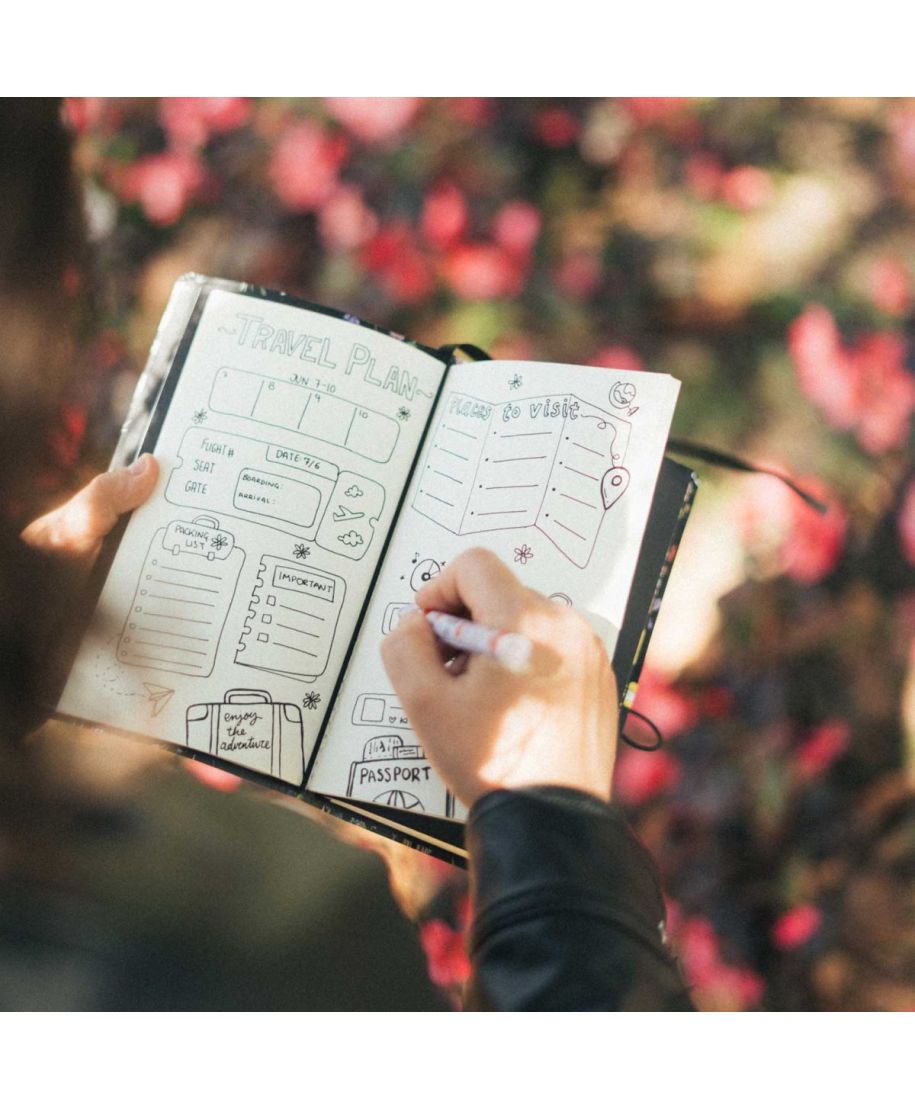 ~TRAVEL PLAN~
JUN 7-10
7 8 9 10
FLIGHT #
SEAT
GATE
DATE: 7/6
BOARDING:
ARRIVAL:
PACKING
LIST
IMPORTANT
enjoy
the
adventure
Places to visit
PASSPORT